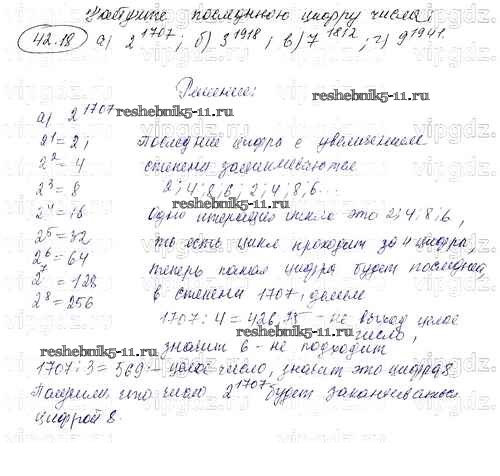 Найдите последнюю цифру числа:
42.18 а) 2^1707; б) 3^1918; в) 7^1812; г) 9^1941.
Решение:
а) 2^1707
2^1 = 2;
2^2 = 4
2^3 = 8
2^4 = 16
2^5 = 32
2^6 = 64
2^7 = 128
2^8 = 256
Последние цифра с увеличением
степени зацикливаются
2; 4; 8; 6; 2; 4; 8; 6...
Одна итерация цикла это 2; 4; 8; 6,
то есть цикл проходит за 4 цифры,
теперь какая цифра будет последней,
в степени 1707, делем
1707 : 4 = 426,75 - не выход целое
число,
значит 6 - не подходит
1707 : 3 = 569 - целое число, значит это цифра 8.
Получили что число 2^1707 будет заканчиваться
цифрой 8.
reshebnik5-11.ru
reshebnik5-11.ru
reshebnik5-11.ru
reshebnik5-11.ru
vipgdz.com